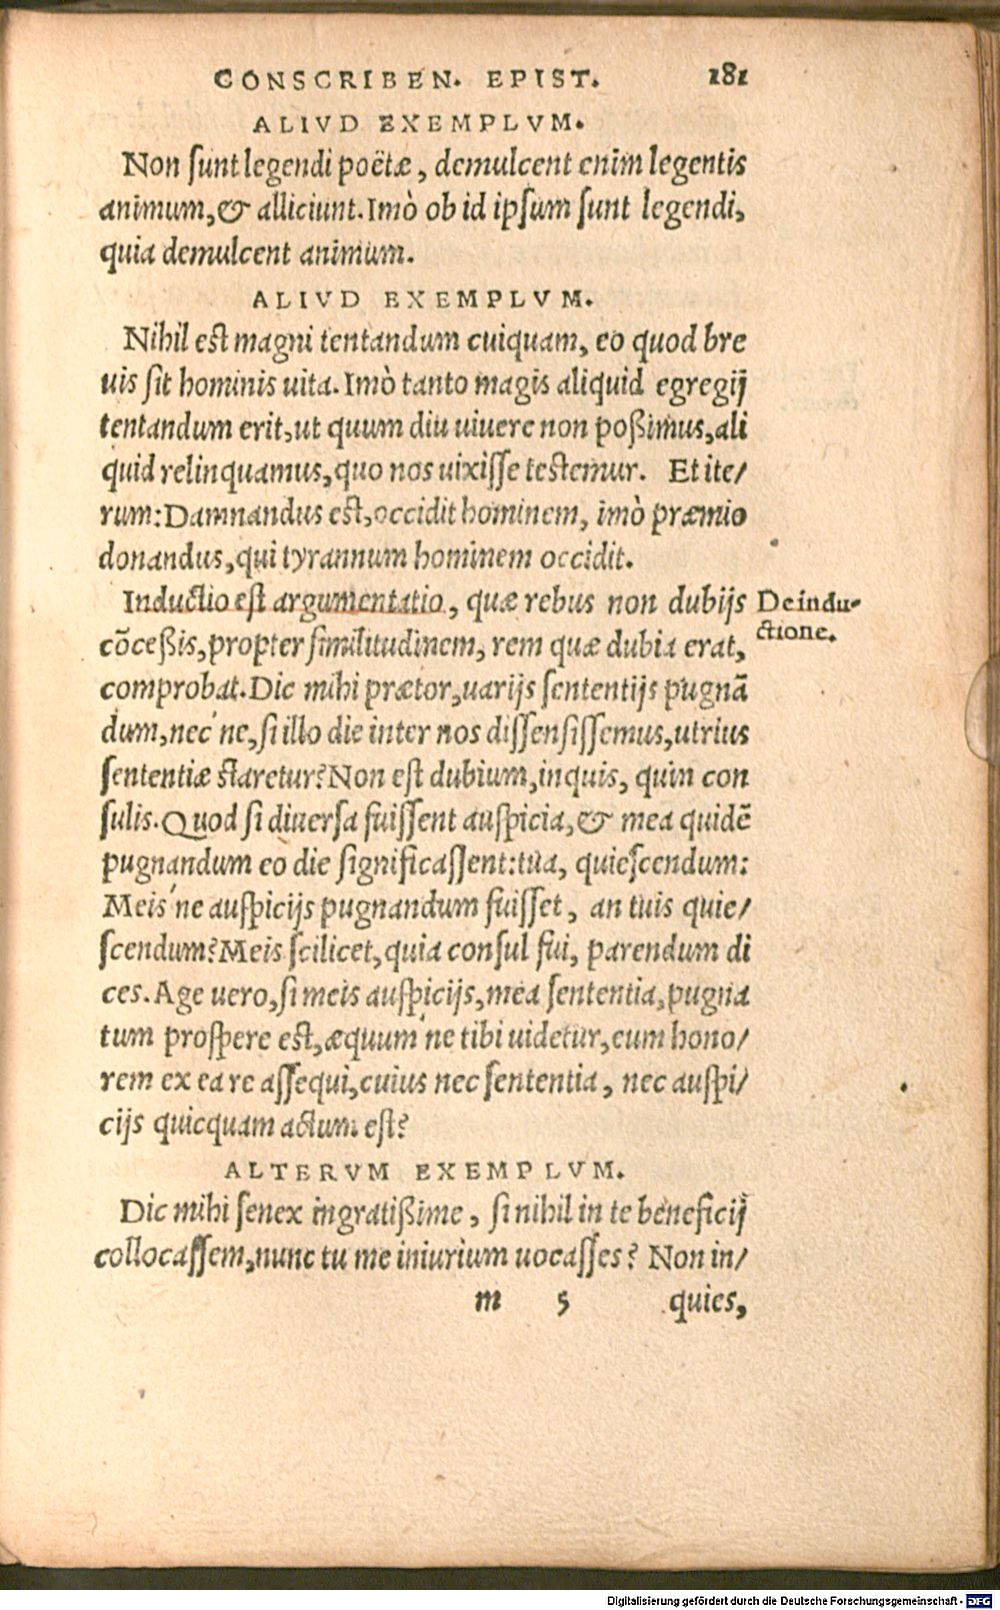 CONSCRIBEN. EPIST. 181
ALIVD EXEMPLVM.
Non sunt legendi poëtæ, demulcent enim legentis
animum, & alliciunt. Imò ob id ipsum sunt legendi,
quia demulcent animum.
ALIVD EXEMPLVM.
Nihil est magni tentandum cuiquam, eo quod bre
uis sit hominis uita. Imò tanto magis aliquid egregij
tentandum erit, ut quum diu uiuere non poßimus, ali
quid relinquamus, quo nos uixisse testemur. Et ite/
rum: Damnandus est, occidit hominem, imò præmio
donandus, qui tyrannum hominem occidit.
Inductio est argumentatio, quæ rebus non dubijs
cõceßis, propter similitudinem, rem quæ dubia erat,
comprobat. Dic mihi prætor, uarijs sententijs pugnã
dum, nec'ne, si illo die inter nos dissensissemus, utrius
sententiæ staretur? Non est dubium, inquis, quin con
sulis. Quod si diuersa fuissent auspicia, & mea quidẽ
pugnandum eo die significassent: tua, quiescendum:
Meis'ne auspicijs pugnandum fuisset, an tuis quie/
scendum? Meis scilicet, quia consul fui, parendum di
ces. Age uero, si meis auspicijs, mea sententia, pugna
tum prospere est, æquum'ne tibi uidetur, eum hono/
rem ex ea re assequi, cuius nec sententia, nec auspi/
cijs quicquam actum est?
ALTERVM EXEMPLVM.
Dic mihi senex ingratißime, si nihil in te beneficij
collocassem, nunc tu me iniurium uocasses? Non in/
m 5 quies,
De indu-
ctione.
Digitalisierung gefördert durch die Deutsche Forschungsgemeinschaft - DFG